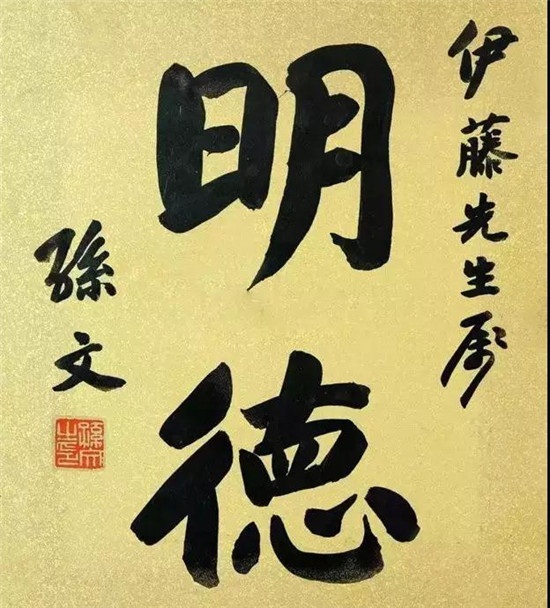 伊藤先生属
明德
孫文
孫文之印